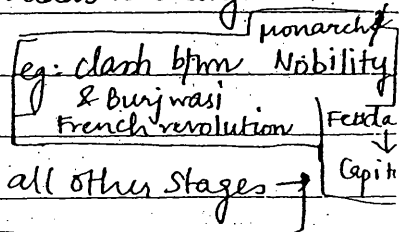 monarchy
eg: clash b/wn Nobility
& Burjwasi
French revolution
Feuda
↓
Capit
all other stages →